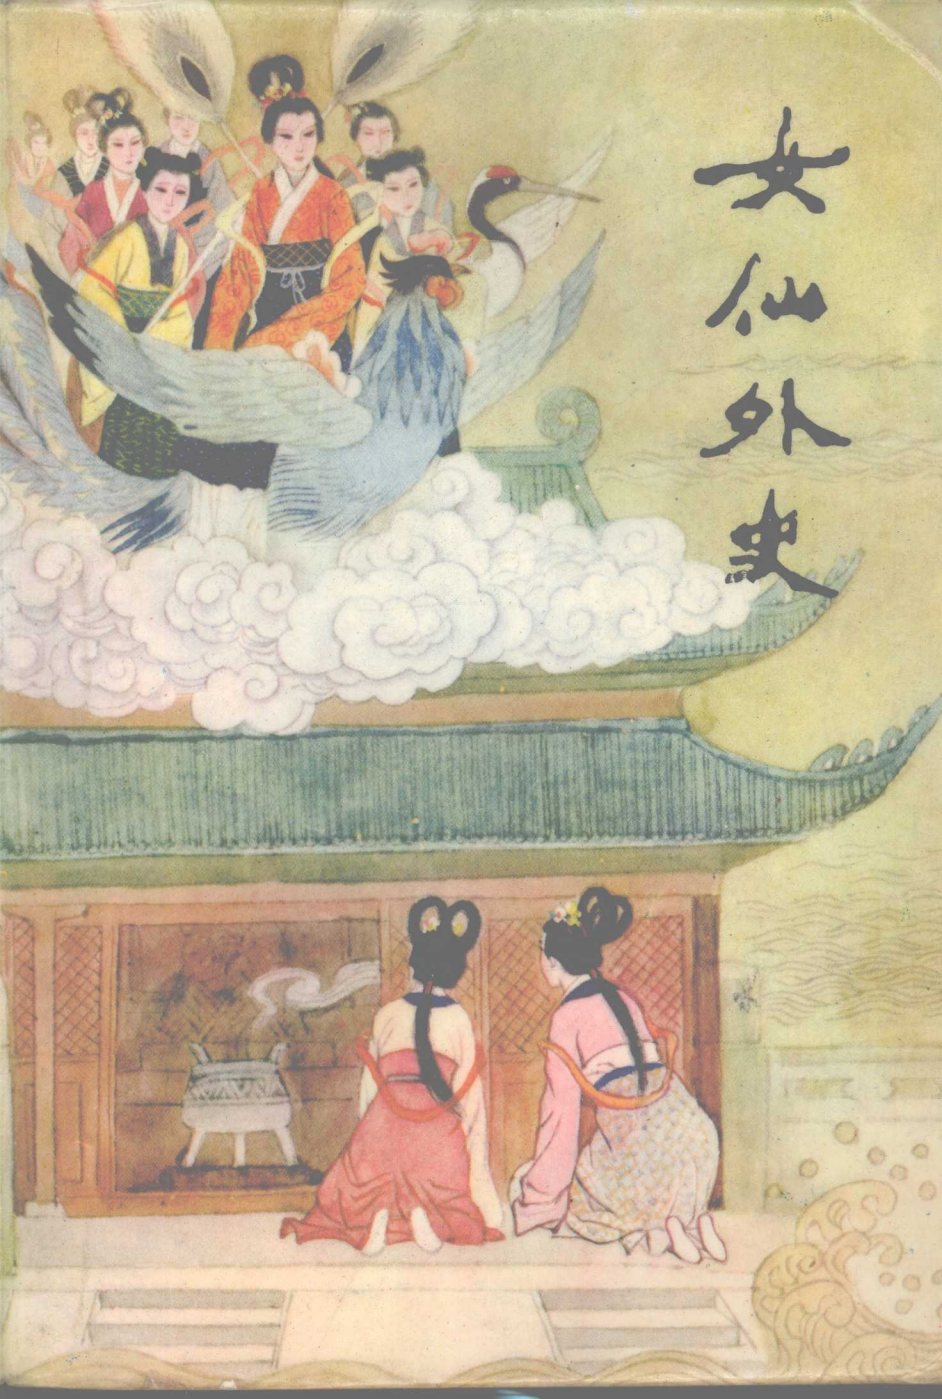 女仙外史